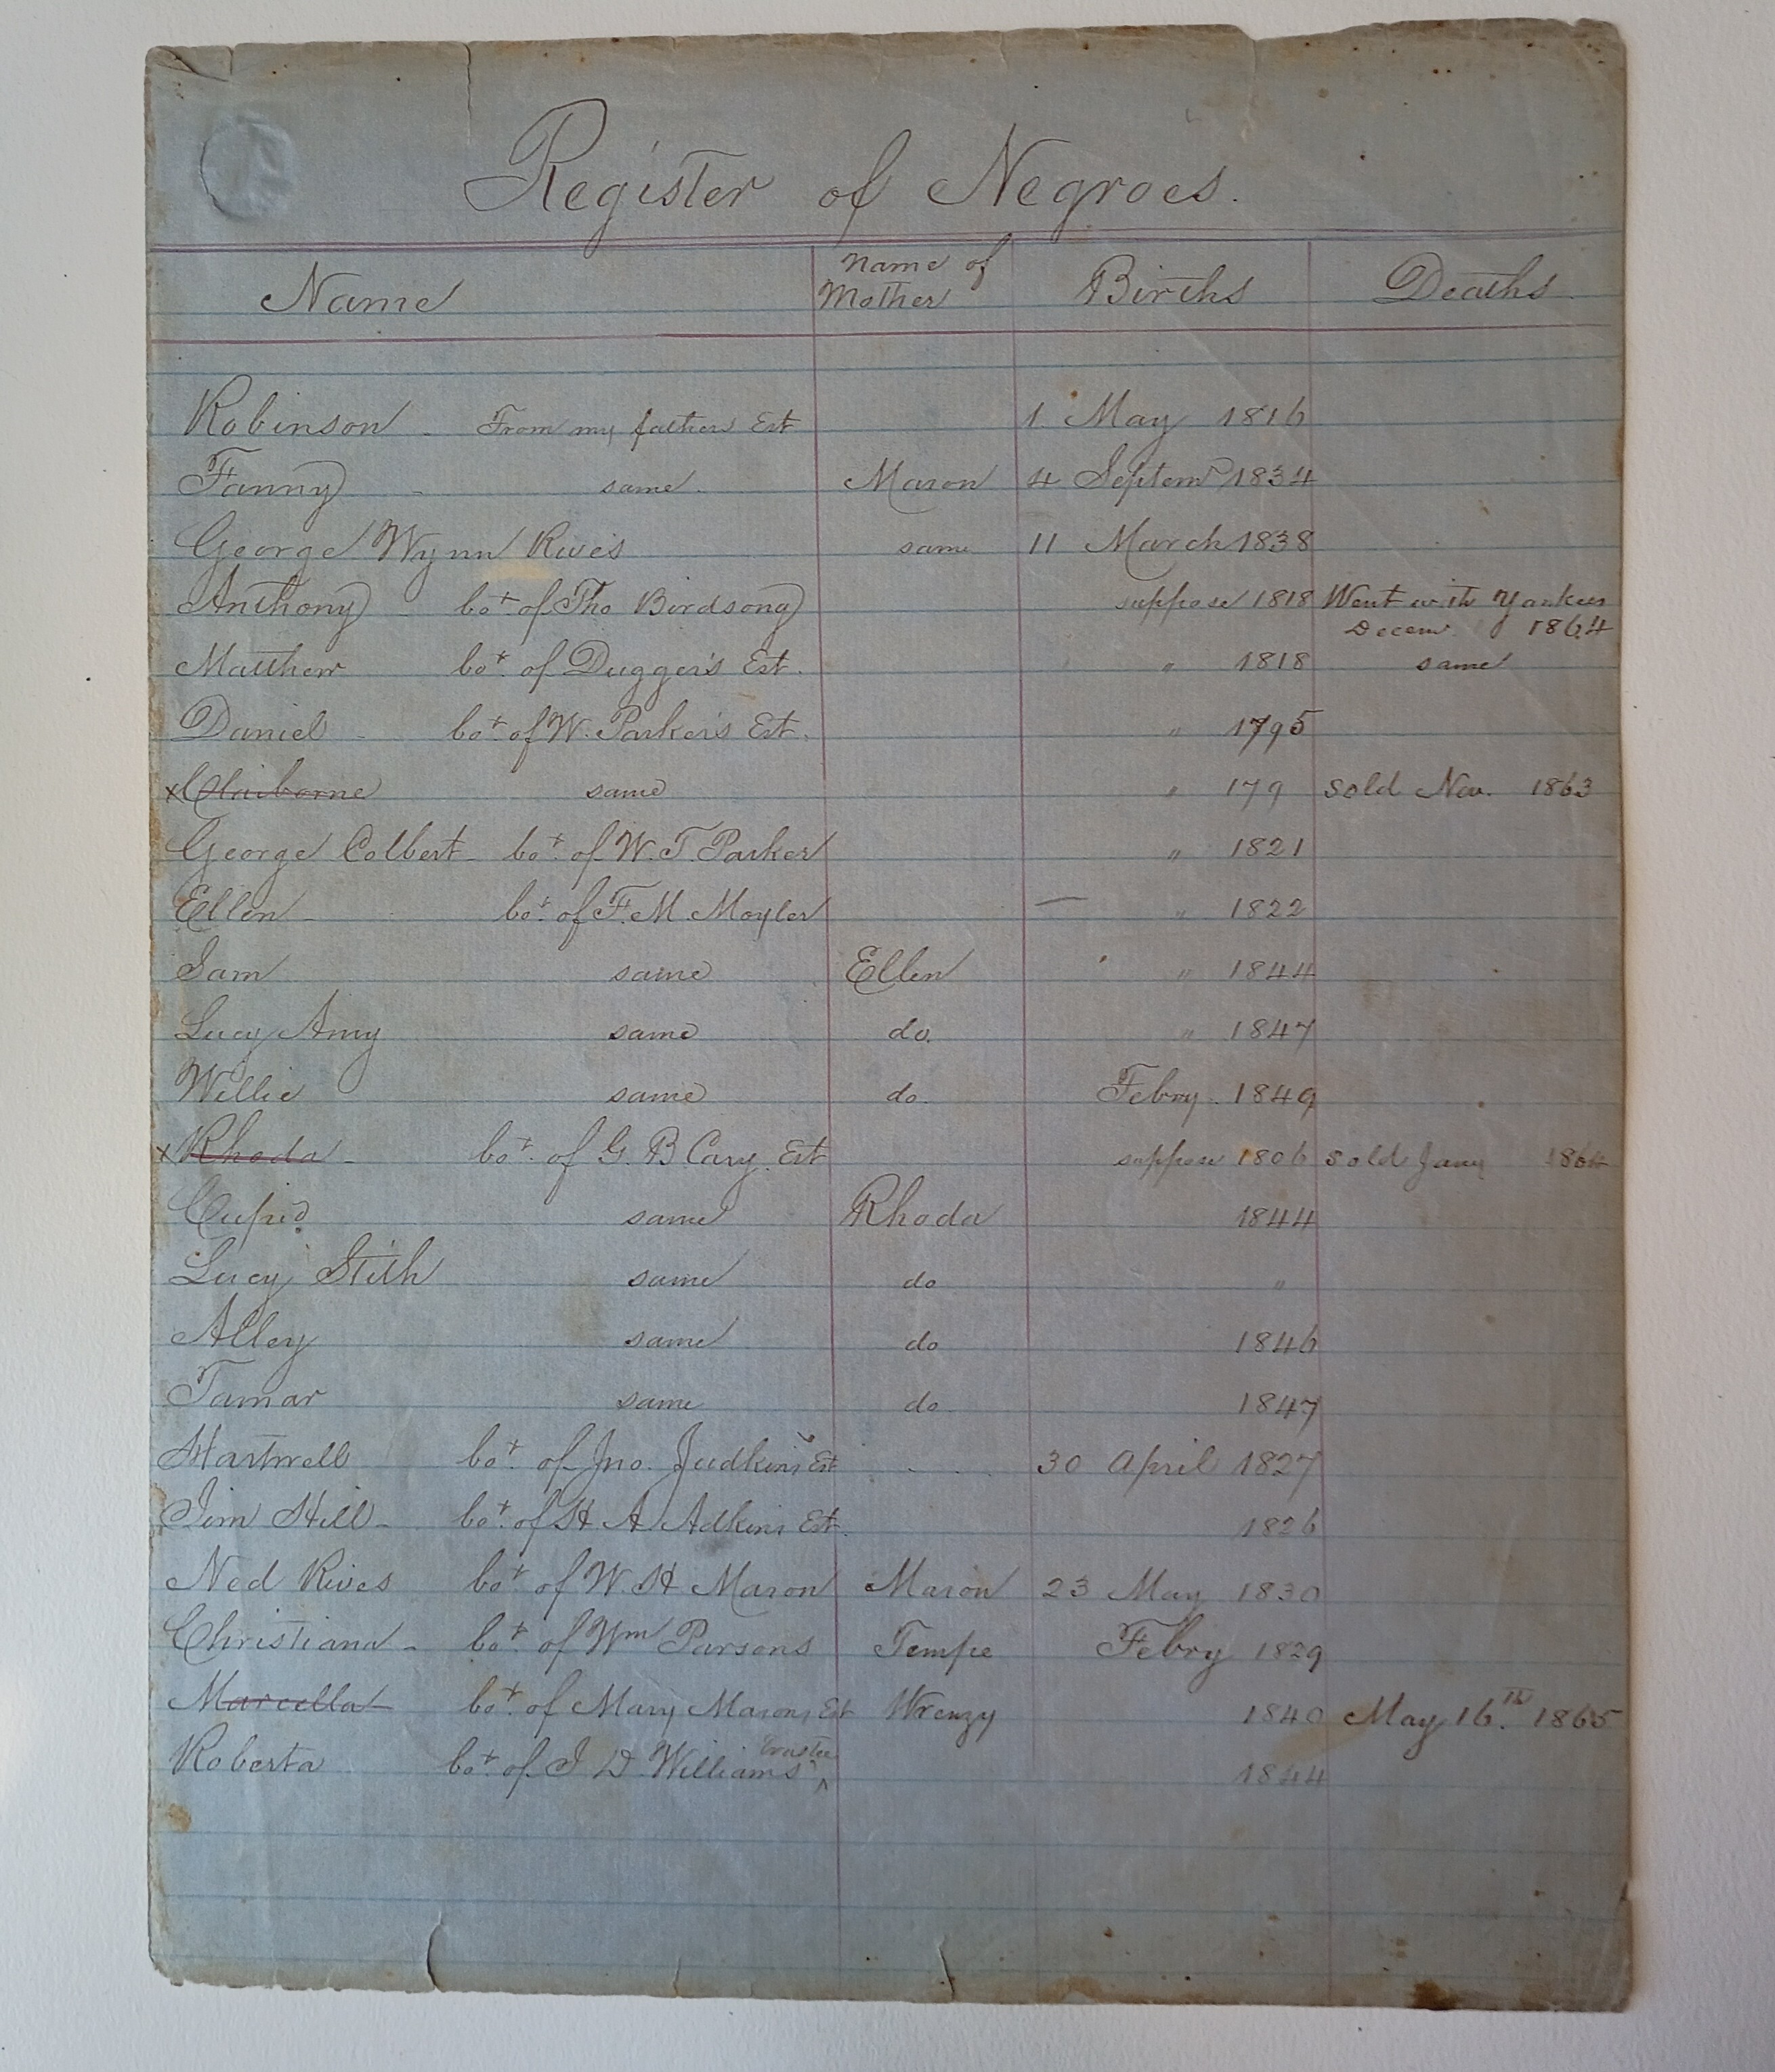 Register of Negroes.
Name Name of Mother Births Deaths
Robinson - From my fathers Est 1 May 1816
Fanny - same. Mason 4 Septemr 1834
George Wynn Rives same 11 March 1838
Anthony - bot of Tho Birdsong suppose 1818 Went with Yankees
Decem. 1864
Matthew bot. of Dugger's Est. " 1818 same
Daniel - bot. of W. Parker's Est. " 1795
x Claiborne same " 179 sold Nov. 1863
George Colbert - bot. of W. T Parker " 1821
Ellen - bot. of F. M. Moyler — " 1822
Sam same Ellen " 1844
Lucy Amy same do. " 1847
Willie same do. Febry. 1849
x Rhoda - bot. of G. B Cary. Est suppose 1806 sold Jany 1864
Cupid same Rhoda 1844
Lucy Stith same do "
Alley same do 1846
Tamar same do 1847
Hartwell bot. of Jno. Judkins' Est 30 April 1827
Jim Hill - bot. of H A Adkins Est. 1826
Ned Rives bot. of W. H Mason Mason 23 May 1830
Christiana - bot. of Wm Parsons Tempe Febry 1829
Marcella bot. of Mary Masons Est Wrenzy 1840 May 16th. 1865
Roberta bot. of J D. Williams trustee 1844